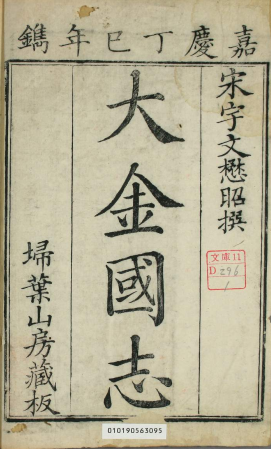 嘉慶丁巳年鐫
宋宇文懋昭撰
大金國志
掃葉山房藏板
文庫11
D296
1
010190563095